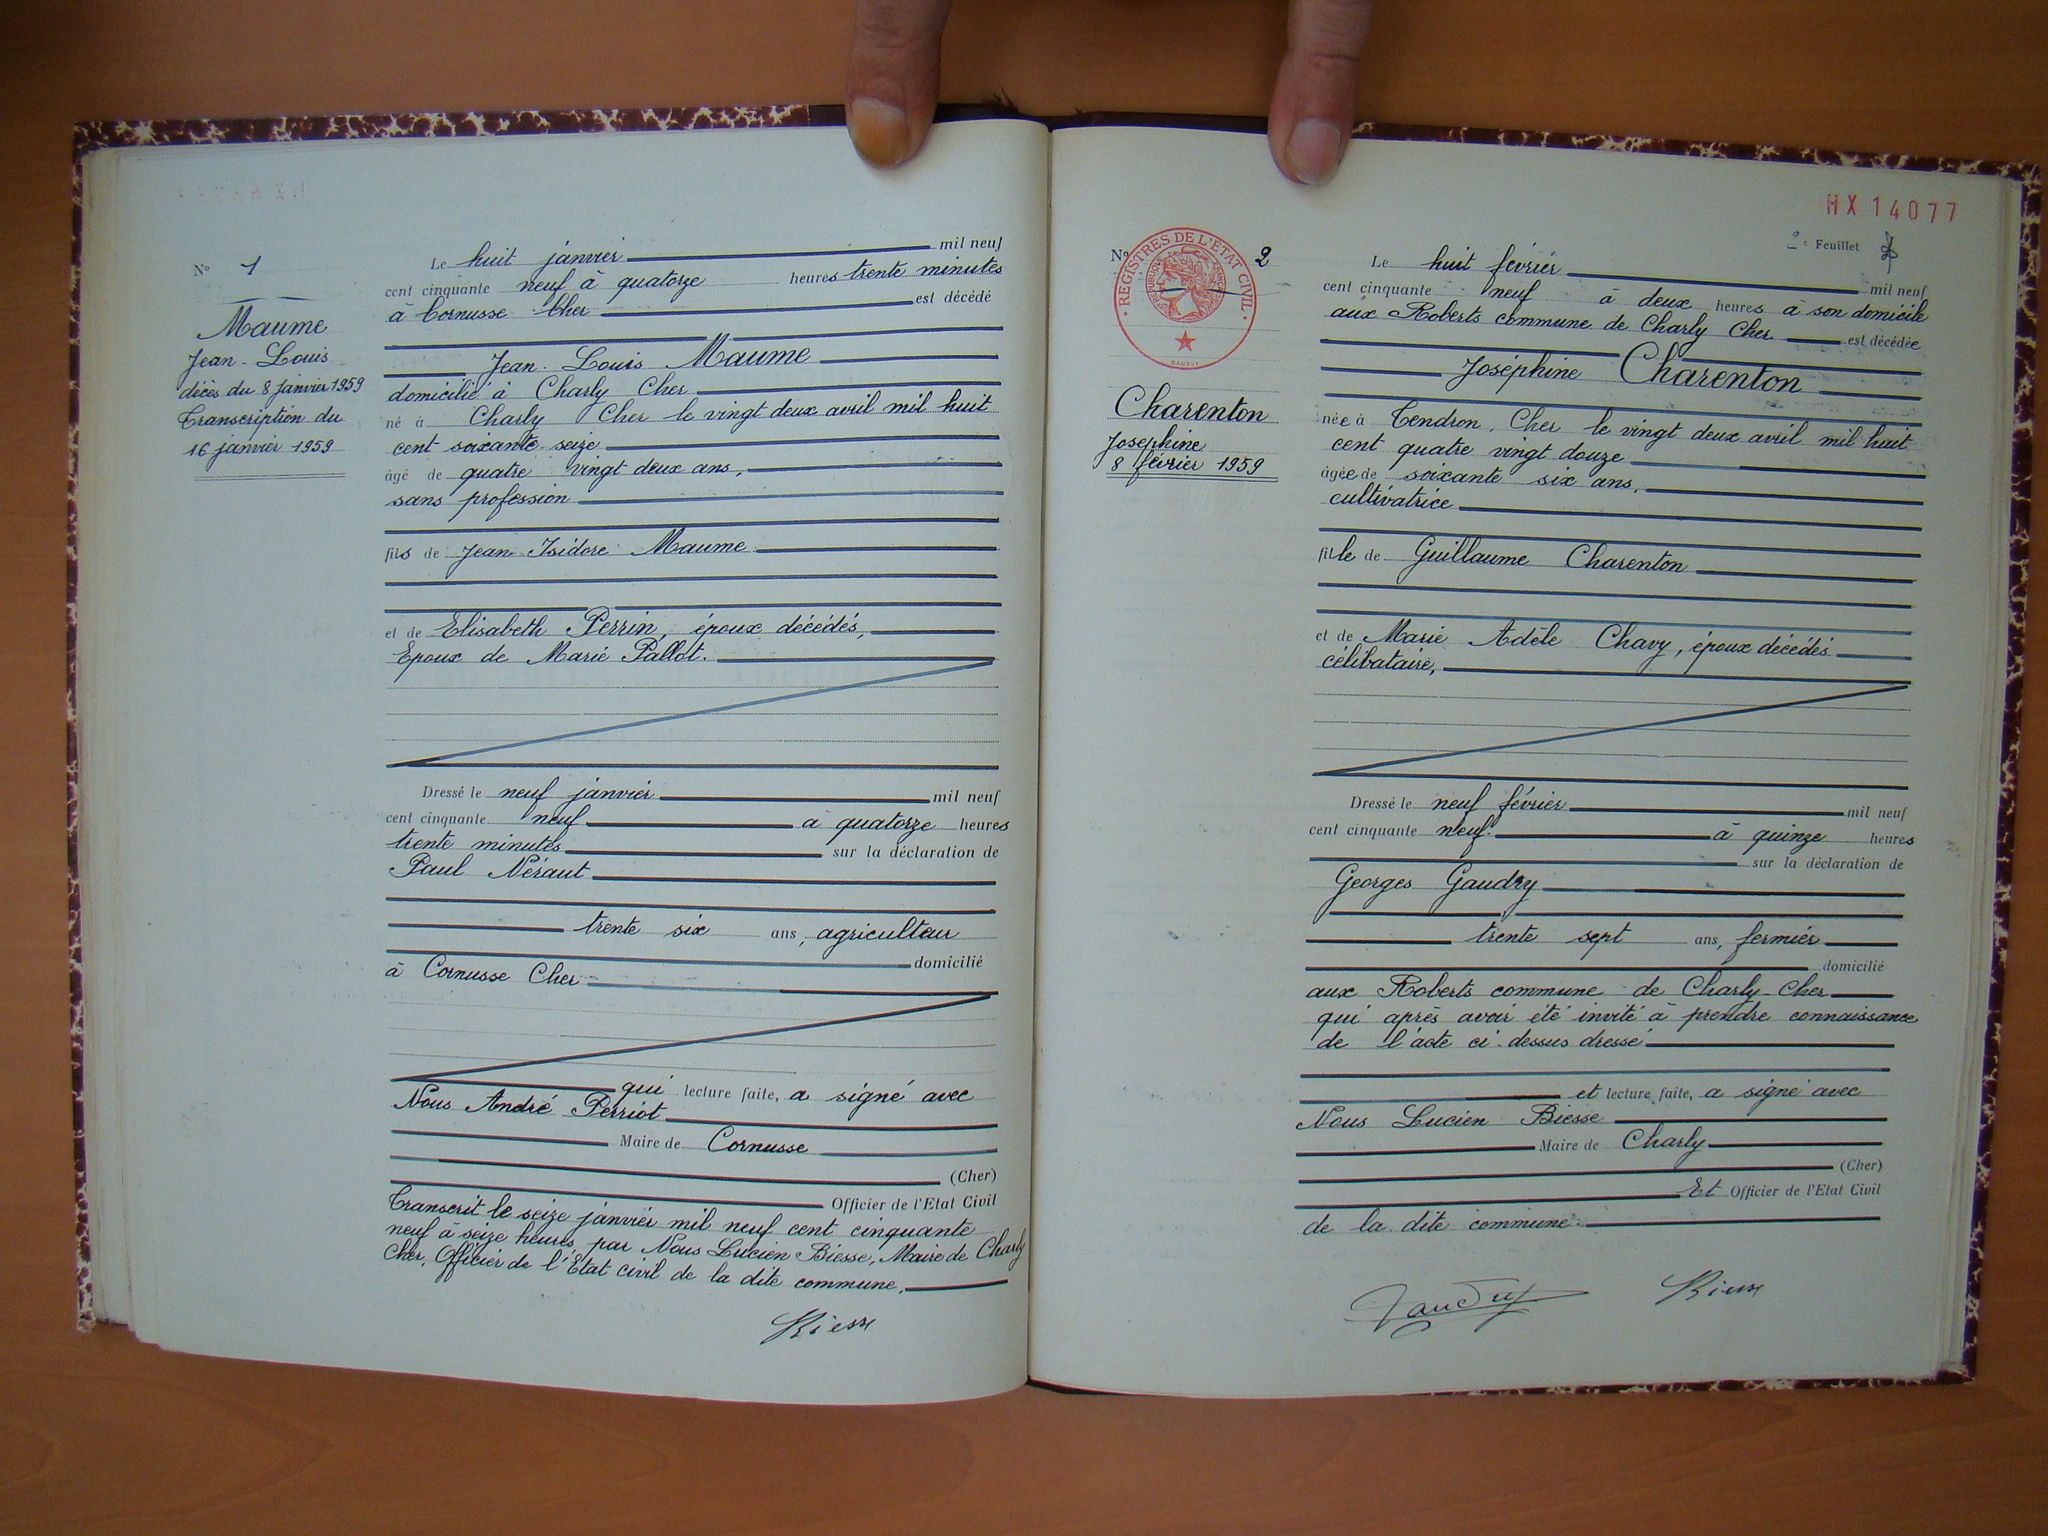 N° 1
Maume
Jean-Louis
décès du 8 Janvier 1959
Transcription du
16 janvier 1959
Le huit janvier mil neuf
cent cinquante neuf à quatorze heures trente minutes
à Cornusse Cher est décédé
Jean-Louis Maume
domicilié à Charly Cher
né à Charly Cher le vingt deux avril mil huit
cent soixante seize
âgé de quatre vingt deux ans,
sans profession
fils de Jean Isidore Maume
et de Elisabeth Perrin, époux décédés,
Epoux de Marie Pallot.
Dressé le neuf janvier mil neuf
cent cinquante neuf à quatorze heures
trente minutes sur la déclaration de
Paul Néraut
trente six ans, agriculteur
domicilié
à Cornusse Cher
qui lecture faite, a signé avec
Nous André Perriot
Maire de Cornusse
(Cher)
Officier de l'Etat Civil
Transcrit le seize janvier mil neuf cent cinquante
neuf à seize heures par Nous Lucien Biesse, Maire de Charly
Cher, Officier de l'Etat civil de la dite commune,
Biesse
HX 14077
2e Feuillet
N° 2
REGISTRES DE L'ETAT CIVIL
REPUBLIQUE FRANÇAISE
Charenton
Joséphine
8 février 1959
Le huit février mil neuf
cent cinquante neuf à deux heures à son domicile
aux Roberts commune de Charly Cher est décédée
Joséphine Charenton
née à Tendron, Cher le vingt deux avril mil huit
cent quatre vingt douze
âgée de soixante six ans,
cultivatrice
fille de Guillaume Charenton
et de Marie Adèle Chavy, époux décédés
célibataire,
Dressé le neuf février mil neuf
cent cinquante neuf à quinze heures
sur la déclaration de
Georges Gaudry
trente sept ans, fermier
domicilié
aux Roberts commune de Charly-Cher
qui après avoir été invité à prendre connaissance
de l'acte ci-dessus dressé
et lecture faite, a signé avec
Nous Lucien Biesse
Maire de Charly
(Cher)
Et Officier de l'Etat Civil
de la dite commune.
Gaudry Biesse